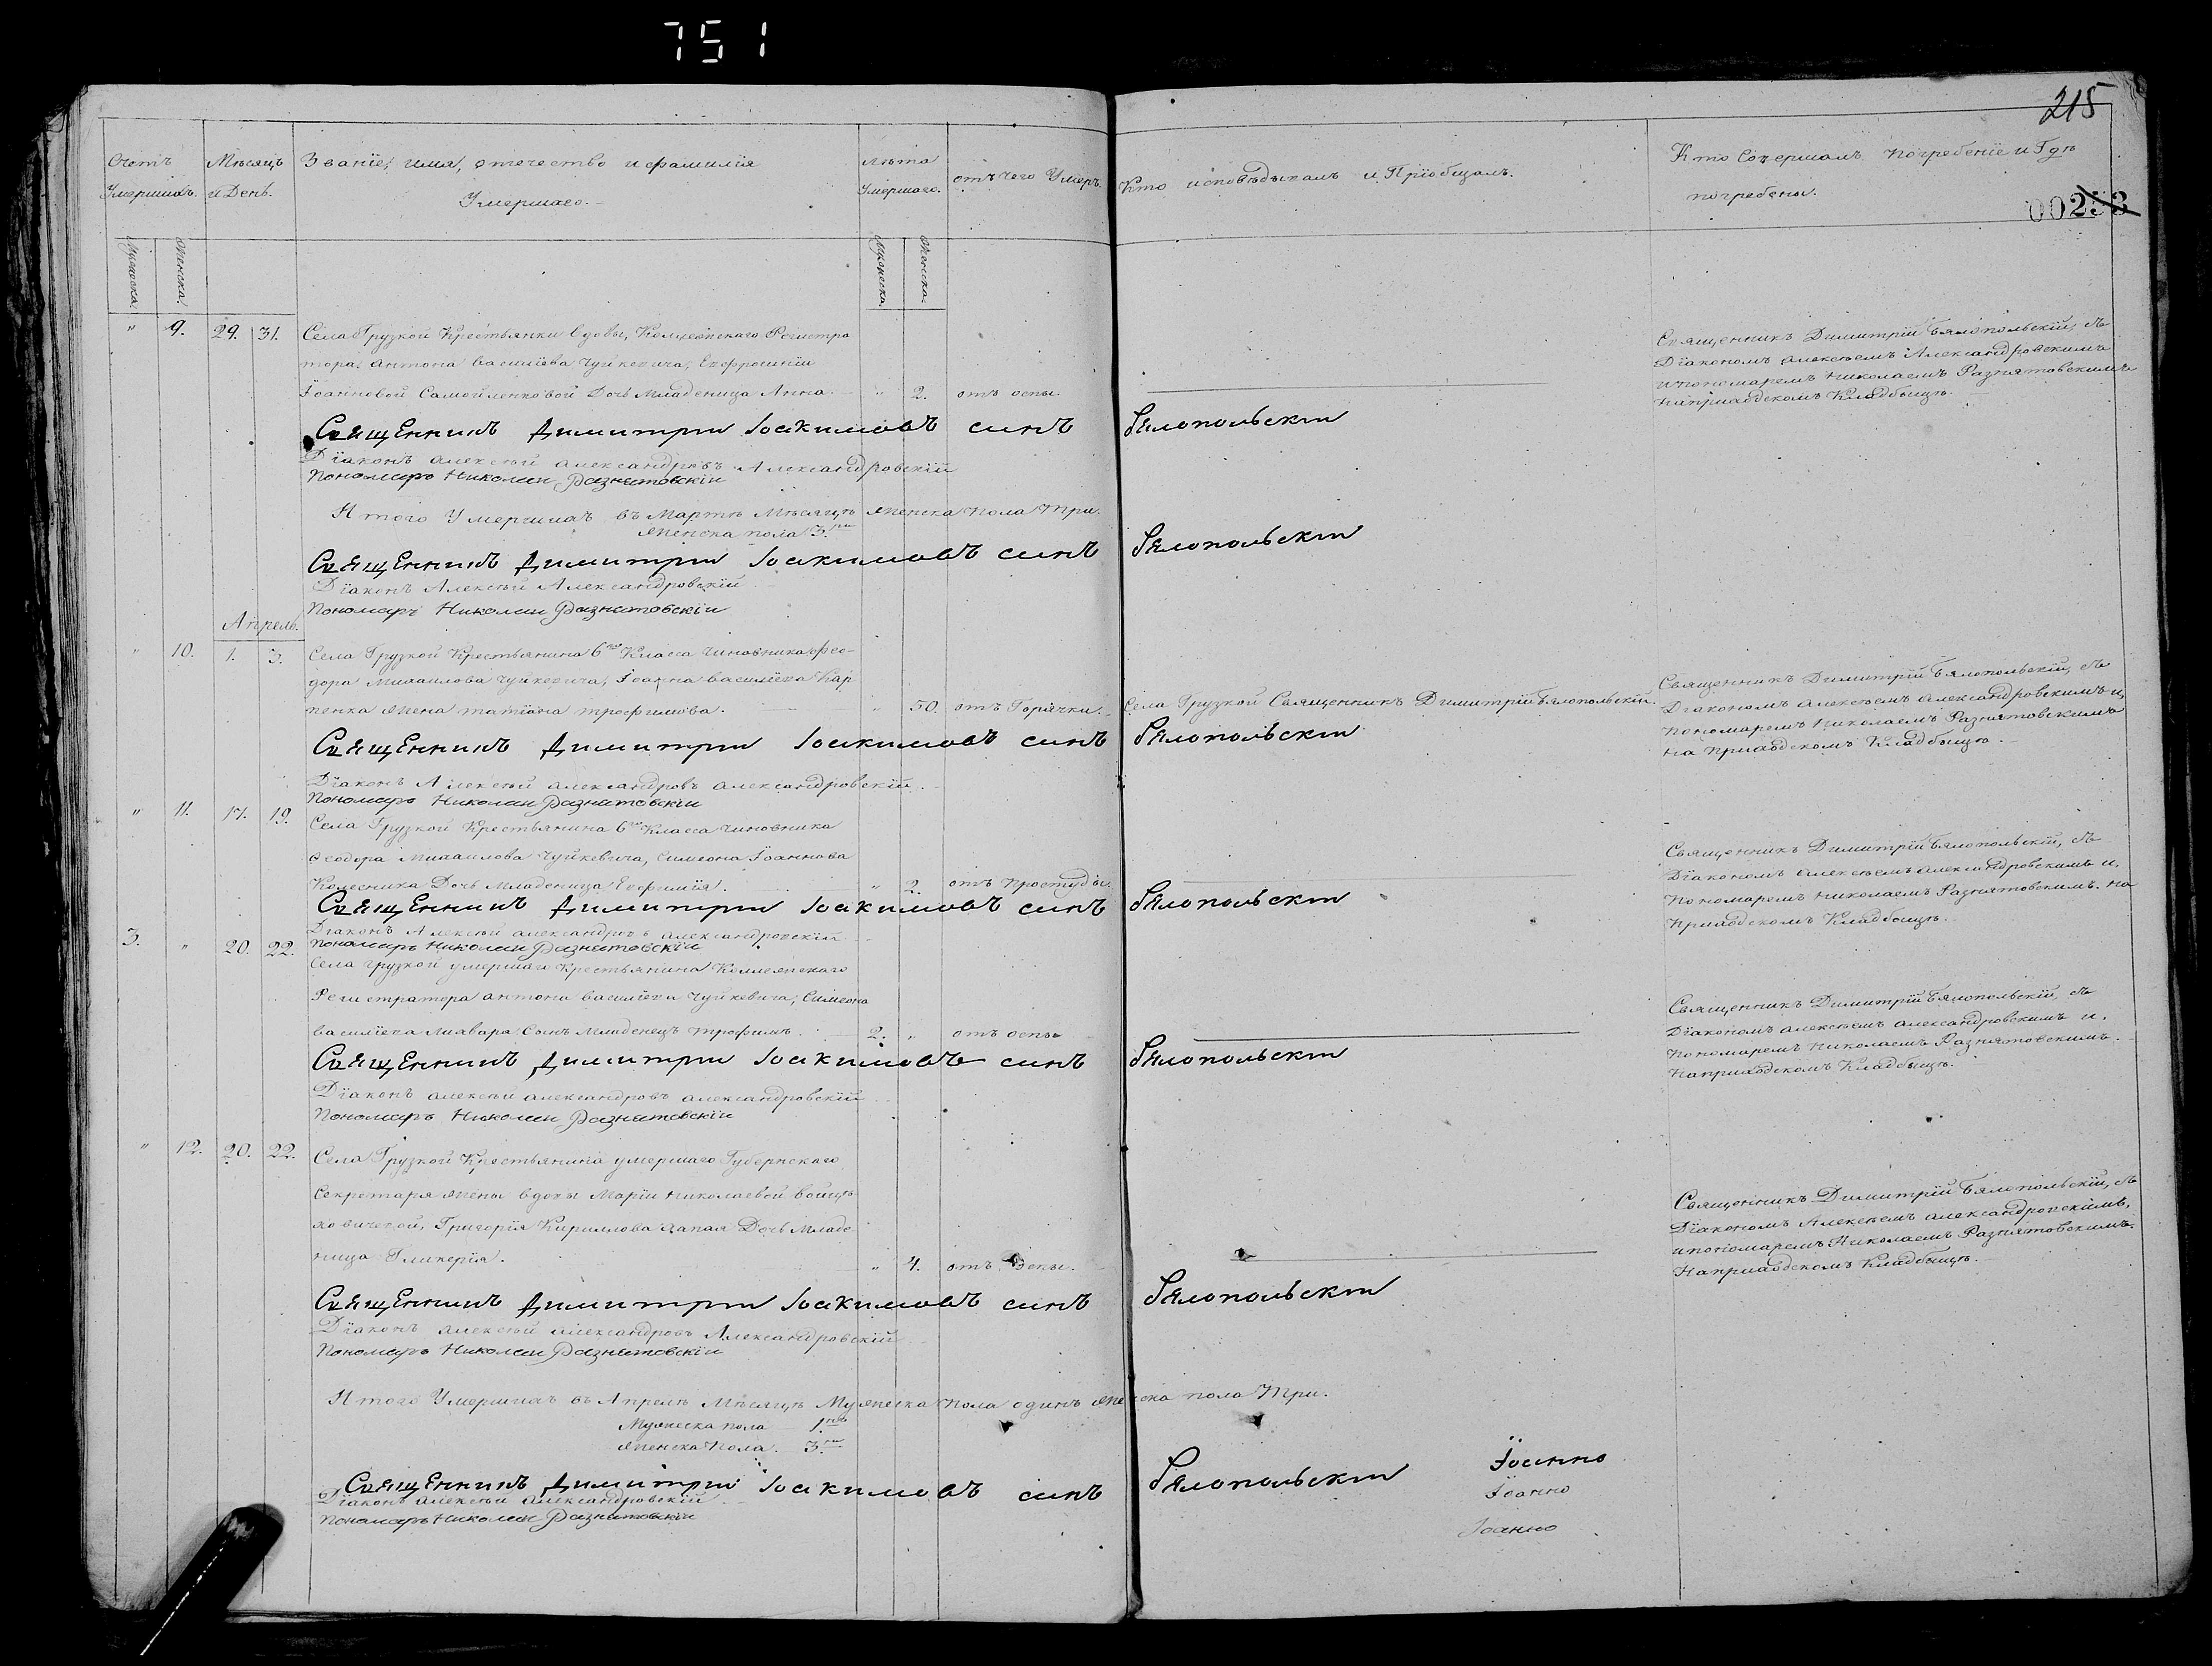 751
215
00253
Счетъ Умершихъ.
Мѣсяцъ и День.
Званїе, имя, отечество и фамилїя Умершаго.
Лѣта Умершаго.
отъ чего Умеръ.
Кто исповѣдывалъ и Прїобщалъ.
Кто Совершалъ погребенїе и Гдѣ погребены.
Мужеска. Женска.
Мужеска. Женска.
" 9. 29. 31. Села Грузкой Крестьянки вдовы, Коллежскаго Регистра
тора Антона Василїева Чуйкевича, Евфросинїи
Їоанновой Самойленковой Дочь Младеница Анна. " 2. отъ оспы.
Священникъ Димитрїй Бялопольскїй, съ
Дїакономъ Алексѣемъ Александровскимъ
и пономаремъ Николаемъ Разнятовскимъ
на приходскомъ Кладбищѣ.
Священникъ Димитрии Іоакимовъ синъ Бялопольскии
Дїаконъ Алексѣй Александровъ Александровскїй
Пономаръ Николаи Разнатовскїи
Итого Умершихъ въ Мартѣ Мѣсяцѣ женска пола три.
женска пола 3.ри
Священникъ Димитрии Іоакимовъ синъ Бялопольскии
Дїаконъ Алексѣй Александровскїй
Пономаръ Николаи Разнатовскїи
Апрель.
" 10. 1. 3. Села Грузкой Крестьянина 6го Класса Чиновника Фео-
дора Михаилова Чуйкевича, Їоанна Василїева Кар
пенка жена Татїана Трофимова. " 50. отъ Горячки. Села Грузкой Священникъ Димитрїй Бялопольскїй.
Священникъ Димитрїй Бялопольскїй, съ
Дїакономъ Алексѣемъ Александровскимъ и
пономаремъ Николаемъ Разнятовскимъ
на приходскомъ Кладбищѣ.
Священникъ Димитрии Іоакимовъ синъ Бялопольскии
Дїаконъ Алексѣй Александровъ Александровскїй.
Пономаръ Николаи Разнатовскїи
" 11. 17. 19. Села Грузкой Крестьянина 6го Класса Чиновника
Феодора Михаилова Чуйкевича, Симеона Їоаннова
Колесника Дочь Младеница Евфимїя. " 2. отъ простуды.
Священникъ Димитрїй Бялопольскїй, съ
Дїакономъ Алексѣемъ Александровскимъ и
пономаремъ Николаемъ Разнятовскимъ. на
приходскомъ Кладбищѣ.
Священникъ Димитрии Іоакимовъ синъ Бялопольскии
Дїаконъ Алексѣй Александровъ Александровскїй
Пономаръ Николаи Разнатовскїи
3. " 20. 22. Села Грузкой умершаго Крестьянина Коллежскаго
Регистратора Антона Василїева Чуйкевича, Симеона
Василїева Сынъ Младенецъ Трофимъ. 2. " отъ оспы
Священникъ Димитрїй Бялопольскїй, съ
Дїакономъ Алексѣемъ Александровскимъ и
пономаремъ Николаемъ Разнятовскимъ.
на приходскомъ Кладбищѣ.
Священникъ Димитрии Іоакимовъ синъ Бялопольскии
Дїаконъ Алексѣй Александровъ Александровскїй
Пономаръ Николаи Разнатовскїи
" 12. 20. 22. Села Грузкой Крестьянина умершаго Губернскаго
Секретаря жены вдовы Марїи Николаевой Войцѣ
ховичевой, Григорїя Кириллова Дочь Младе
ница Гликерїя. " 4. отъ Оспы.
Священникъ Димитрїй Бялопольскїй, съ
Дїакономъ Алексѣемъ Александровскимъ,
и пономаремъ Николаемъ Разнятовскимъ.
на приходскомъ Кладбищѣ.
Священникъ Димитрии Іоакимовъ синъ Бялопольскии
Дїаконъ Алексѣй Александровъ Александровскїй
Пономаръ Николаи Разнатовскїи
Итого Умершихъ въ Апрелѣ Мѣсяцѣ Мужеска пола одинъ женска пола три.
Мужеска пола 1.нъ
женска пола. 3.ри
Священникъ Димитрии Іоакимовъ синъ Бялопольскии
Дїаконъ Алексѣй Александровскїй
Пономаръ Николаи Разнатовскїи
Їоанно
Їоанно
Іоанно